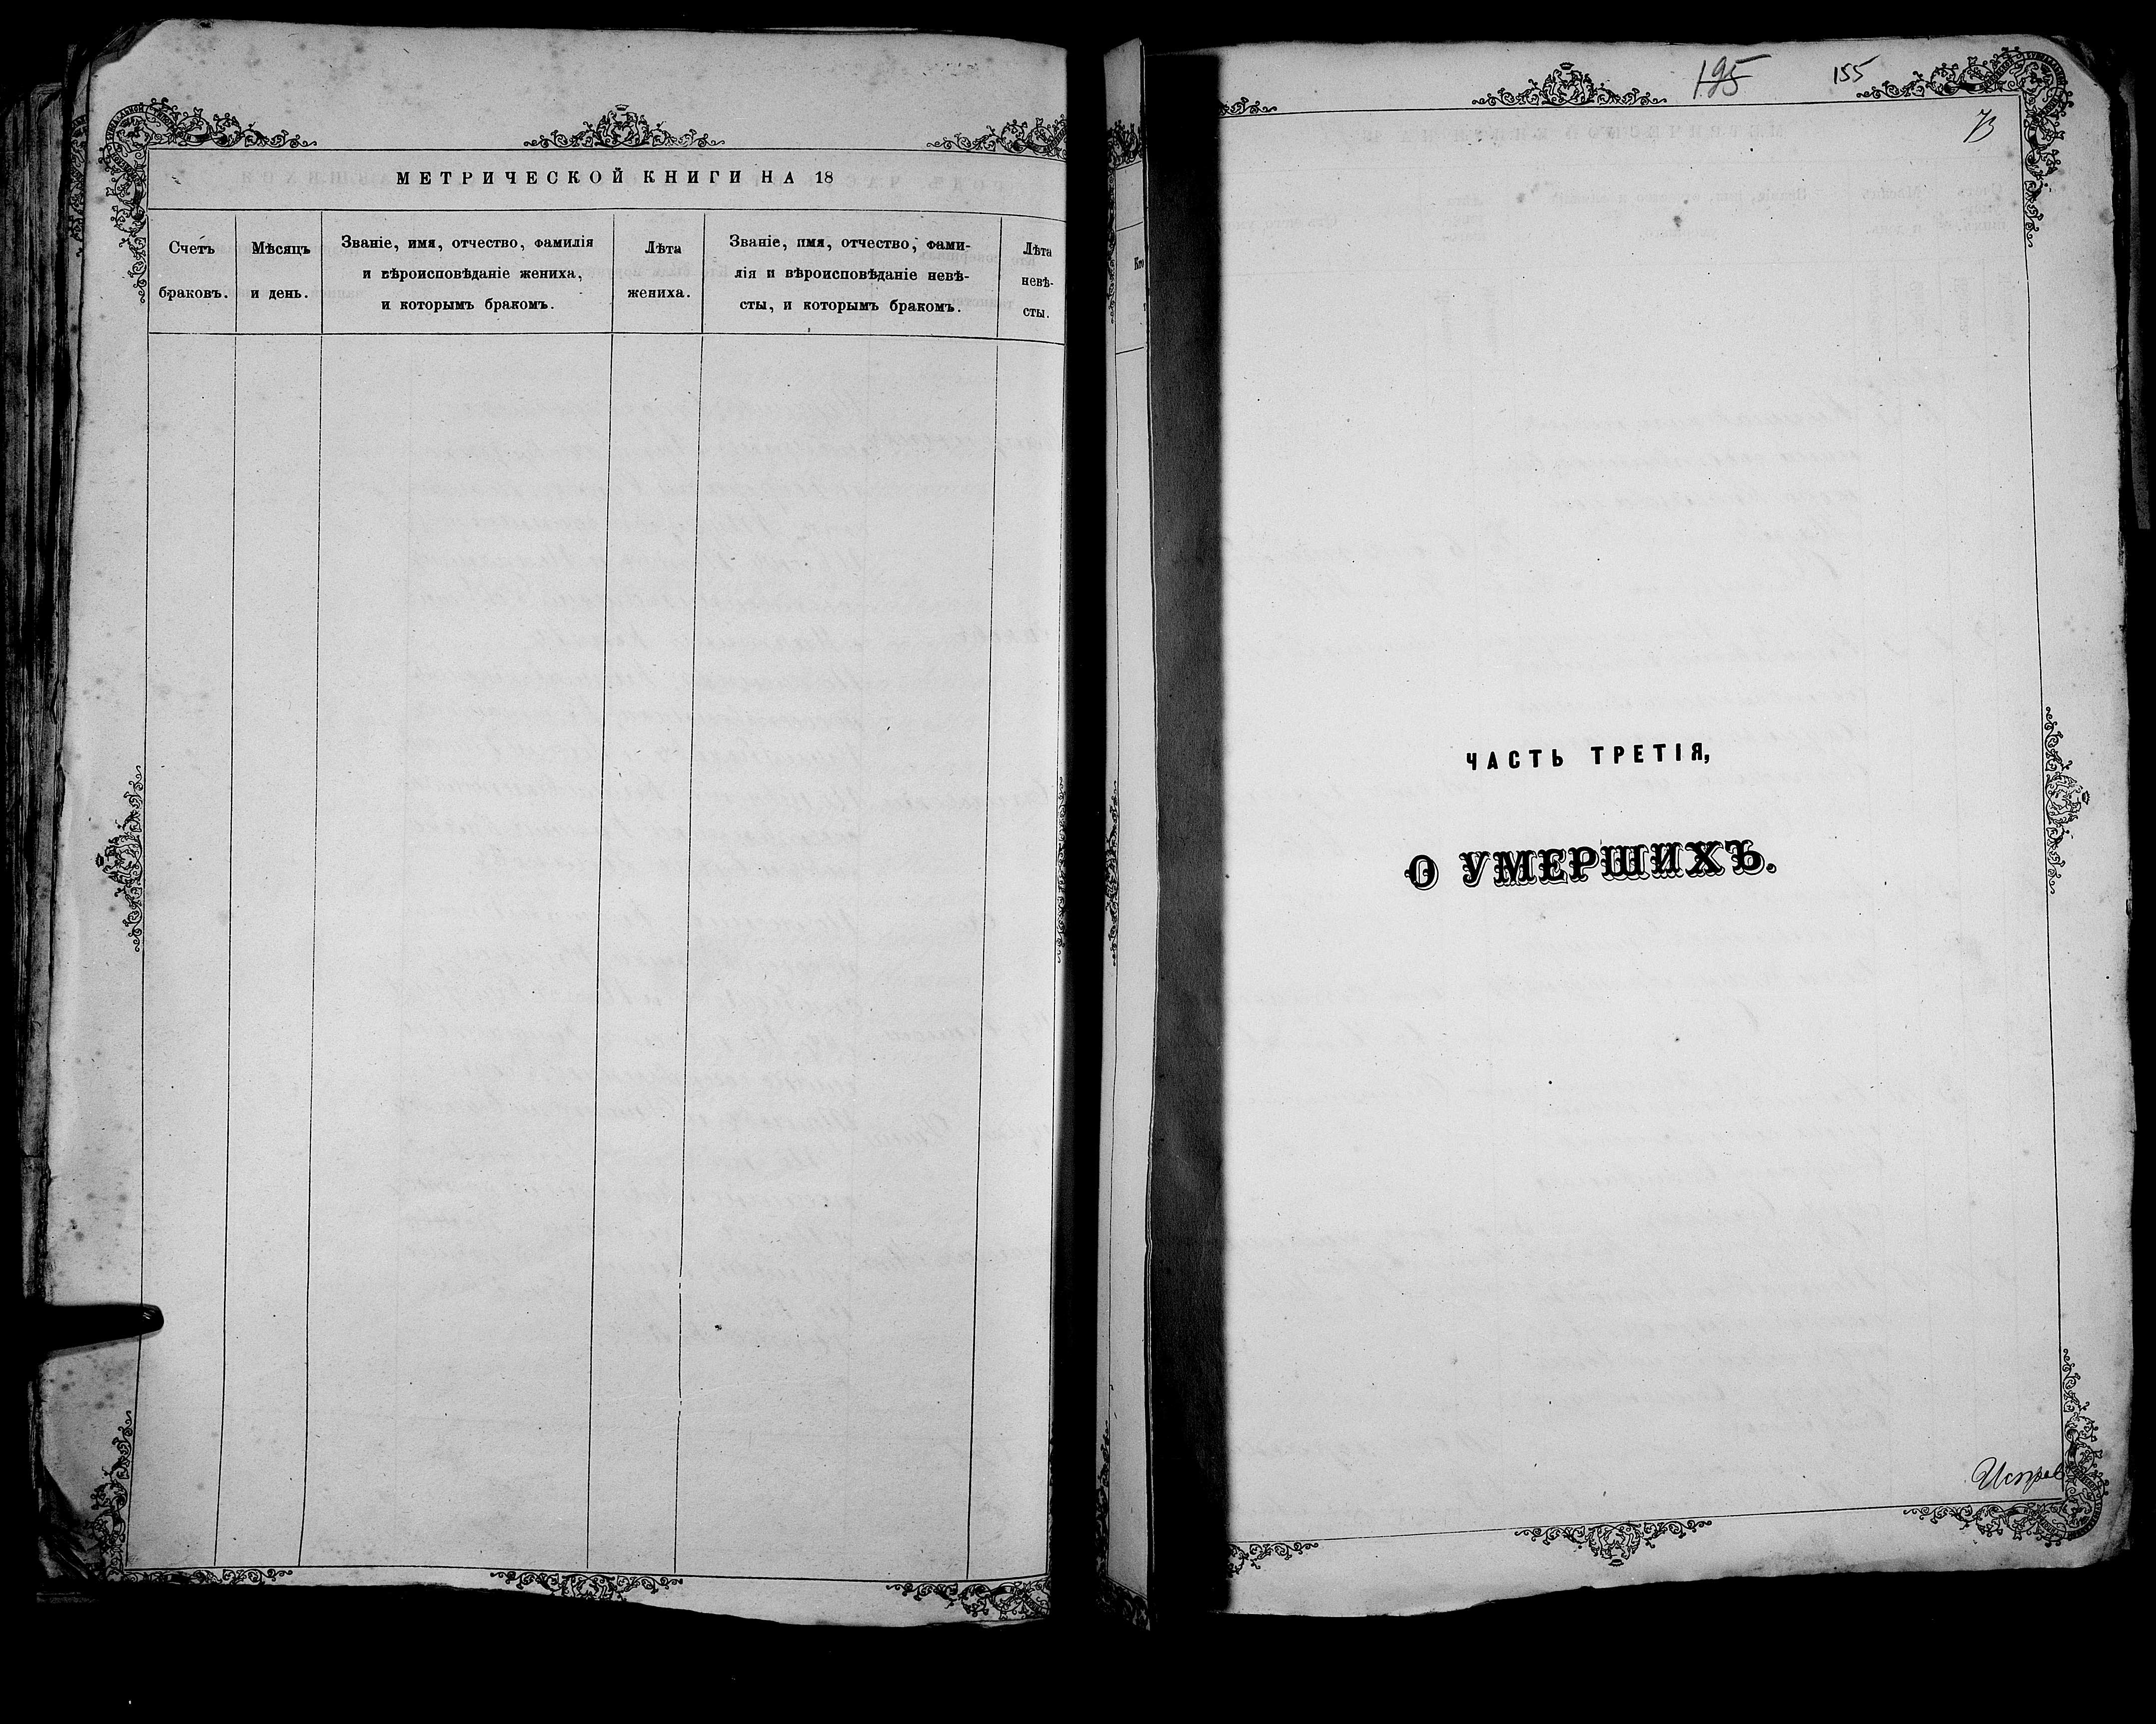 МЕТРИЧЕСКОЙ КНИГИ НА 18
Счетъ
браковъ.
Мѣсяцъ
и день.
Званіе, имя, отчество, фамилія
и вѣроисповѣданіе жениха,
и которымъ бракомъ.
Лѣта
жениха.
Званіе, имя, отчество, фами-
лія и вѣроисповѣданіе невѣ-
сты, и которымъ бракомъ.
Лѣта
невѣ-
сты.
Кто
195
155
73
ЧАСТЬ ТРЕТІЯ,
О УМЕРШИХЪ.